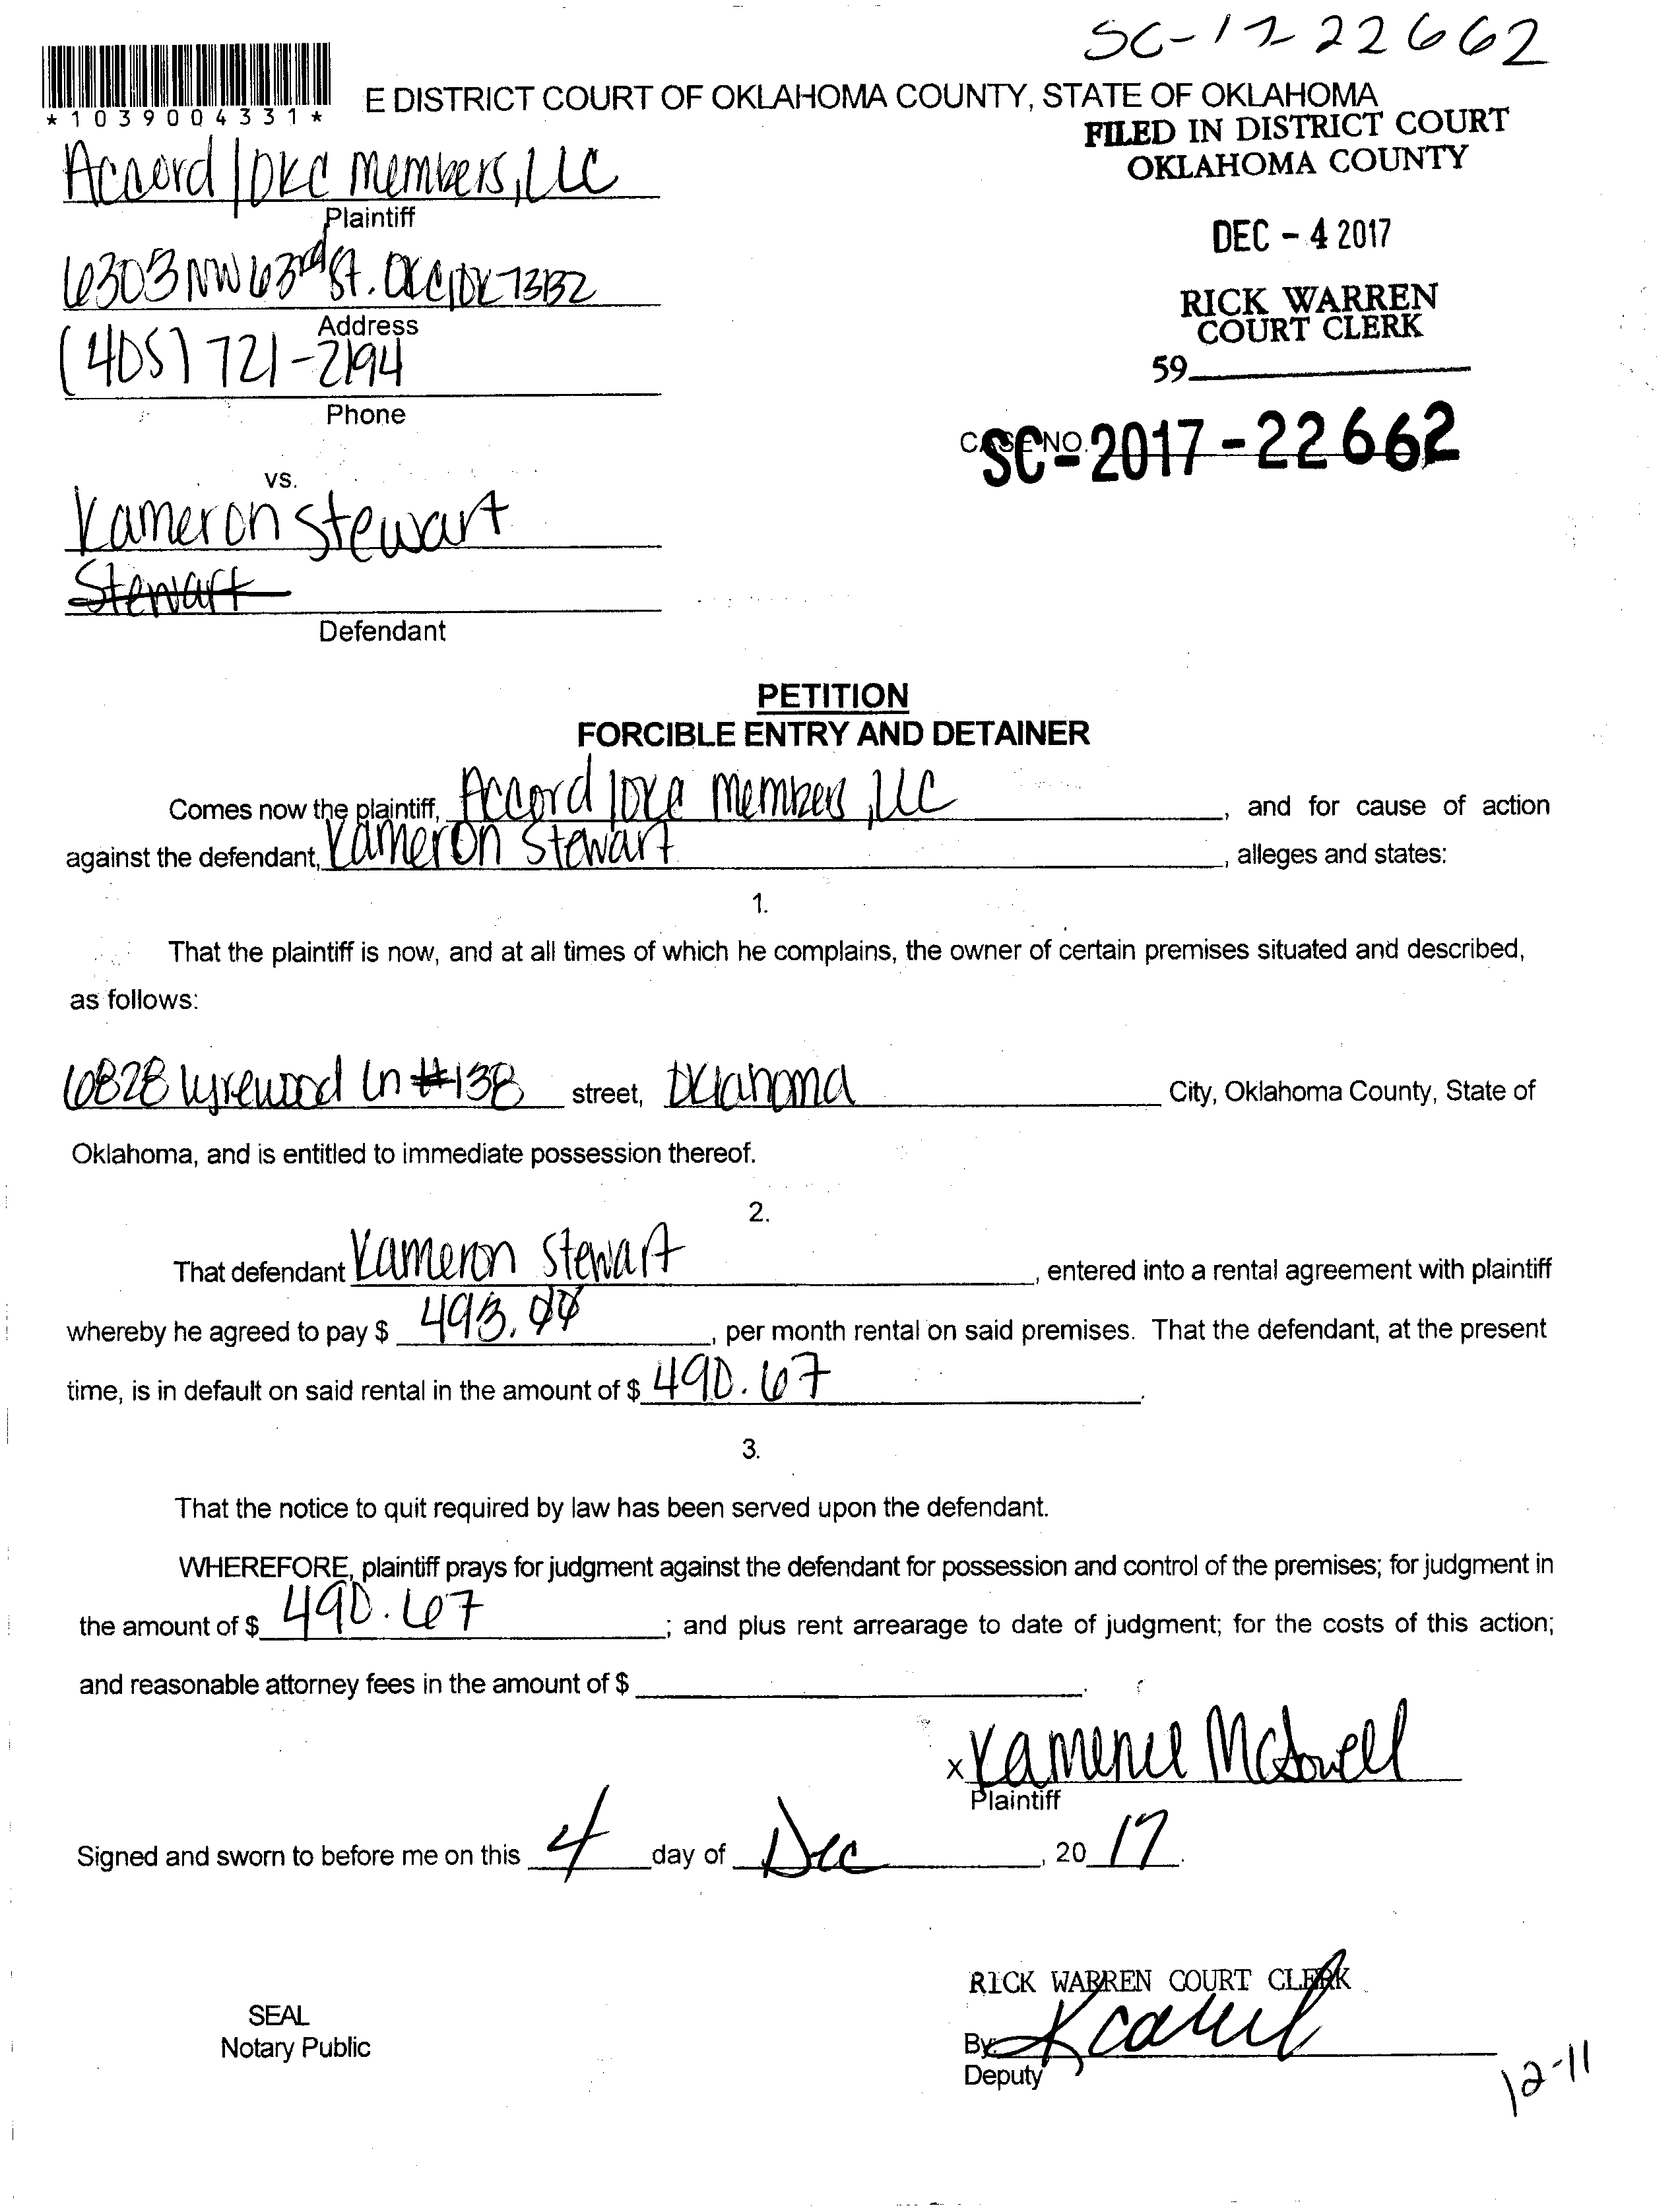 SC-17 22662
*1039004331*
E DISTRICT COURT OF OKLAHOMA COUNTY, STATE OF OKLAHOMA
FILED IN DISTRICT COURT
OKLAHOMA COUNTY
Accord/OKC Members, LLC
Plaintiff
DEC - 4 2017
6303 NW 63rd St. OKC, OK 73132
Address
RICK WARREN
COURT CLERK
(405) 721-2194
59
Phone
CASE NO.
SC-2017-22662
vs.
Kameron Stewart
Stewart
Defendant
PETITION
FORCIBLE ENTRY AND DETAINER
Comes now the plaintiff, Accord/OKC Members, LLC, and for cause of action
against the defendant, Kameron Stewart, alleges and states:
1.
That the plaintiff is now, and at all times of which he complains, the owner of certain premises situated and described,
as follows:
6828 Lyrewood Ln #138 street, Oklahoma City, Oklahoma County, State of
Oklahoma, and is entitled to immediate possession thereof.
2.
That defendant Kameron Stewart, entered into a rental agreement with plaintiff
whereby he agreed to pay $ 493.00, per month rental on said premises. That the defendant, at the present
time, is in default on said rental in the amount of $ 490.67.
3.
That the notice to quit required by law has been served upon the defendant.
WHEREFORE, plaintiff prays for judgment against the defendant for possession and control of the premises; for judgment in
the amount of $ 490.67; and plus rent arrearage to date of judgment; for the costs of this action;
and reasonable attorney fees in the amount of $ .
x McDowell
Plaintiff
Signed and sworn to before me on this 4 day of Dec, 20 17.
RICK WARREN COURT CLERK
SEAL
Notary Public
By:
Deputy
12-11